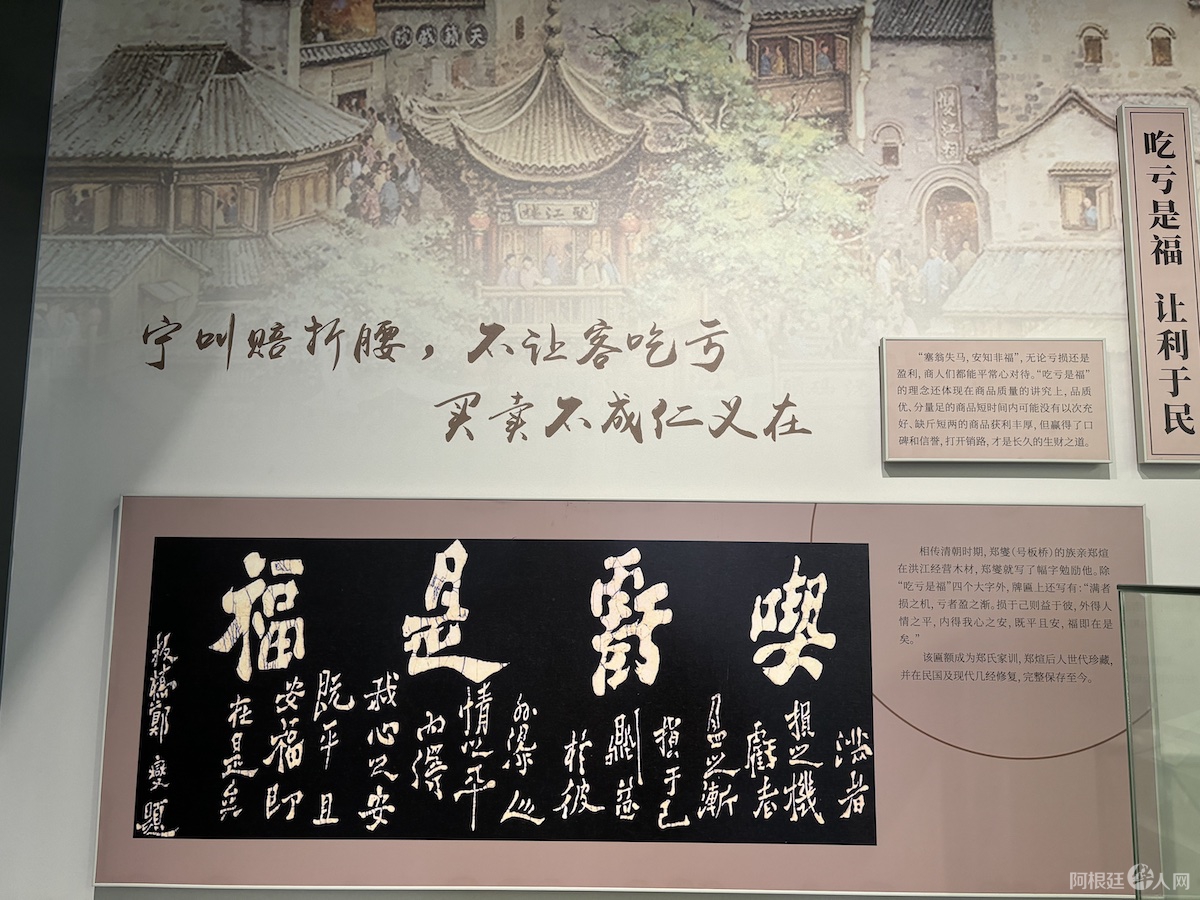 天籁戏院
雙江樓
宁叫赔折腰，不让客吃亏
买卖不成仁义在
吃亏是福 让利于民
“塞翁失马，安知非福”，无论亏损还是
盈利，商人们都能平常心对待。“吃亏是福”
的理念还体现在商品质量的讲究上，品质
优、分量足的商品短时间内可能没有以次充
好、缺斤短两的商品获利丰厚，但赢得了口
碑和信誉，打开销路，才是长久的生财之道。
喫虧是福
满者
損之機
虧者
盈之漸
損于己
則益
於彼
外得人
情之平
内得
我心之安
既平且
安福即
在是矣
板橋鄭燮題
相传清朝时期，郑燮（号板桥）的族亲郑煊
在洪江经营木材，郑燮就写了幅字勉励他。除
“吃亏是福”四个大字外，牌匾上还写有：“满者
损之机，亏者盈之渐。损于己则益于彼，外得人
情之平，内得我心之安，既平且安，福即在是
矣。”
该匾额成为郑氏家训，郑煊后人世代珍藏，
并在民国及现代几经修复，完整保存至今。
阿根廷华人网